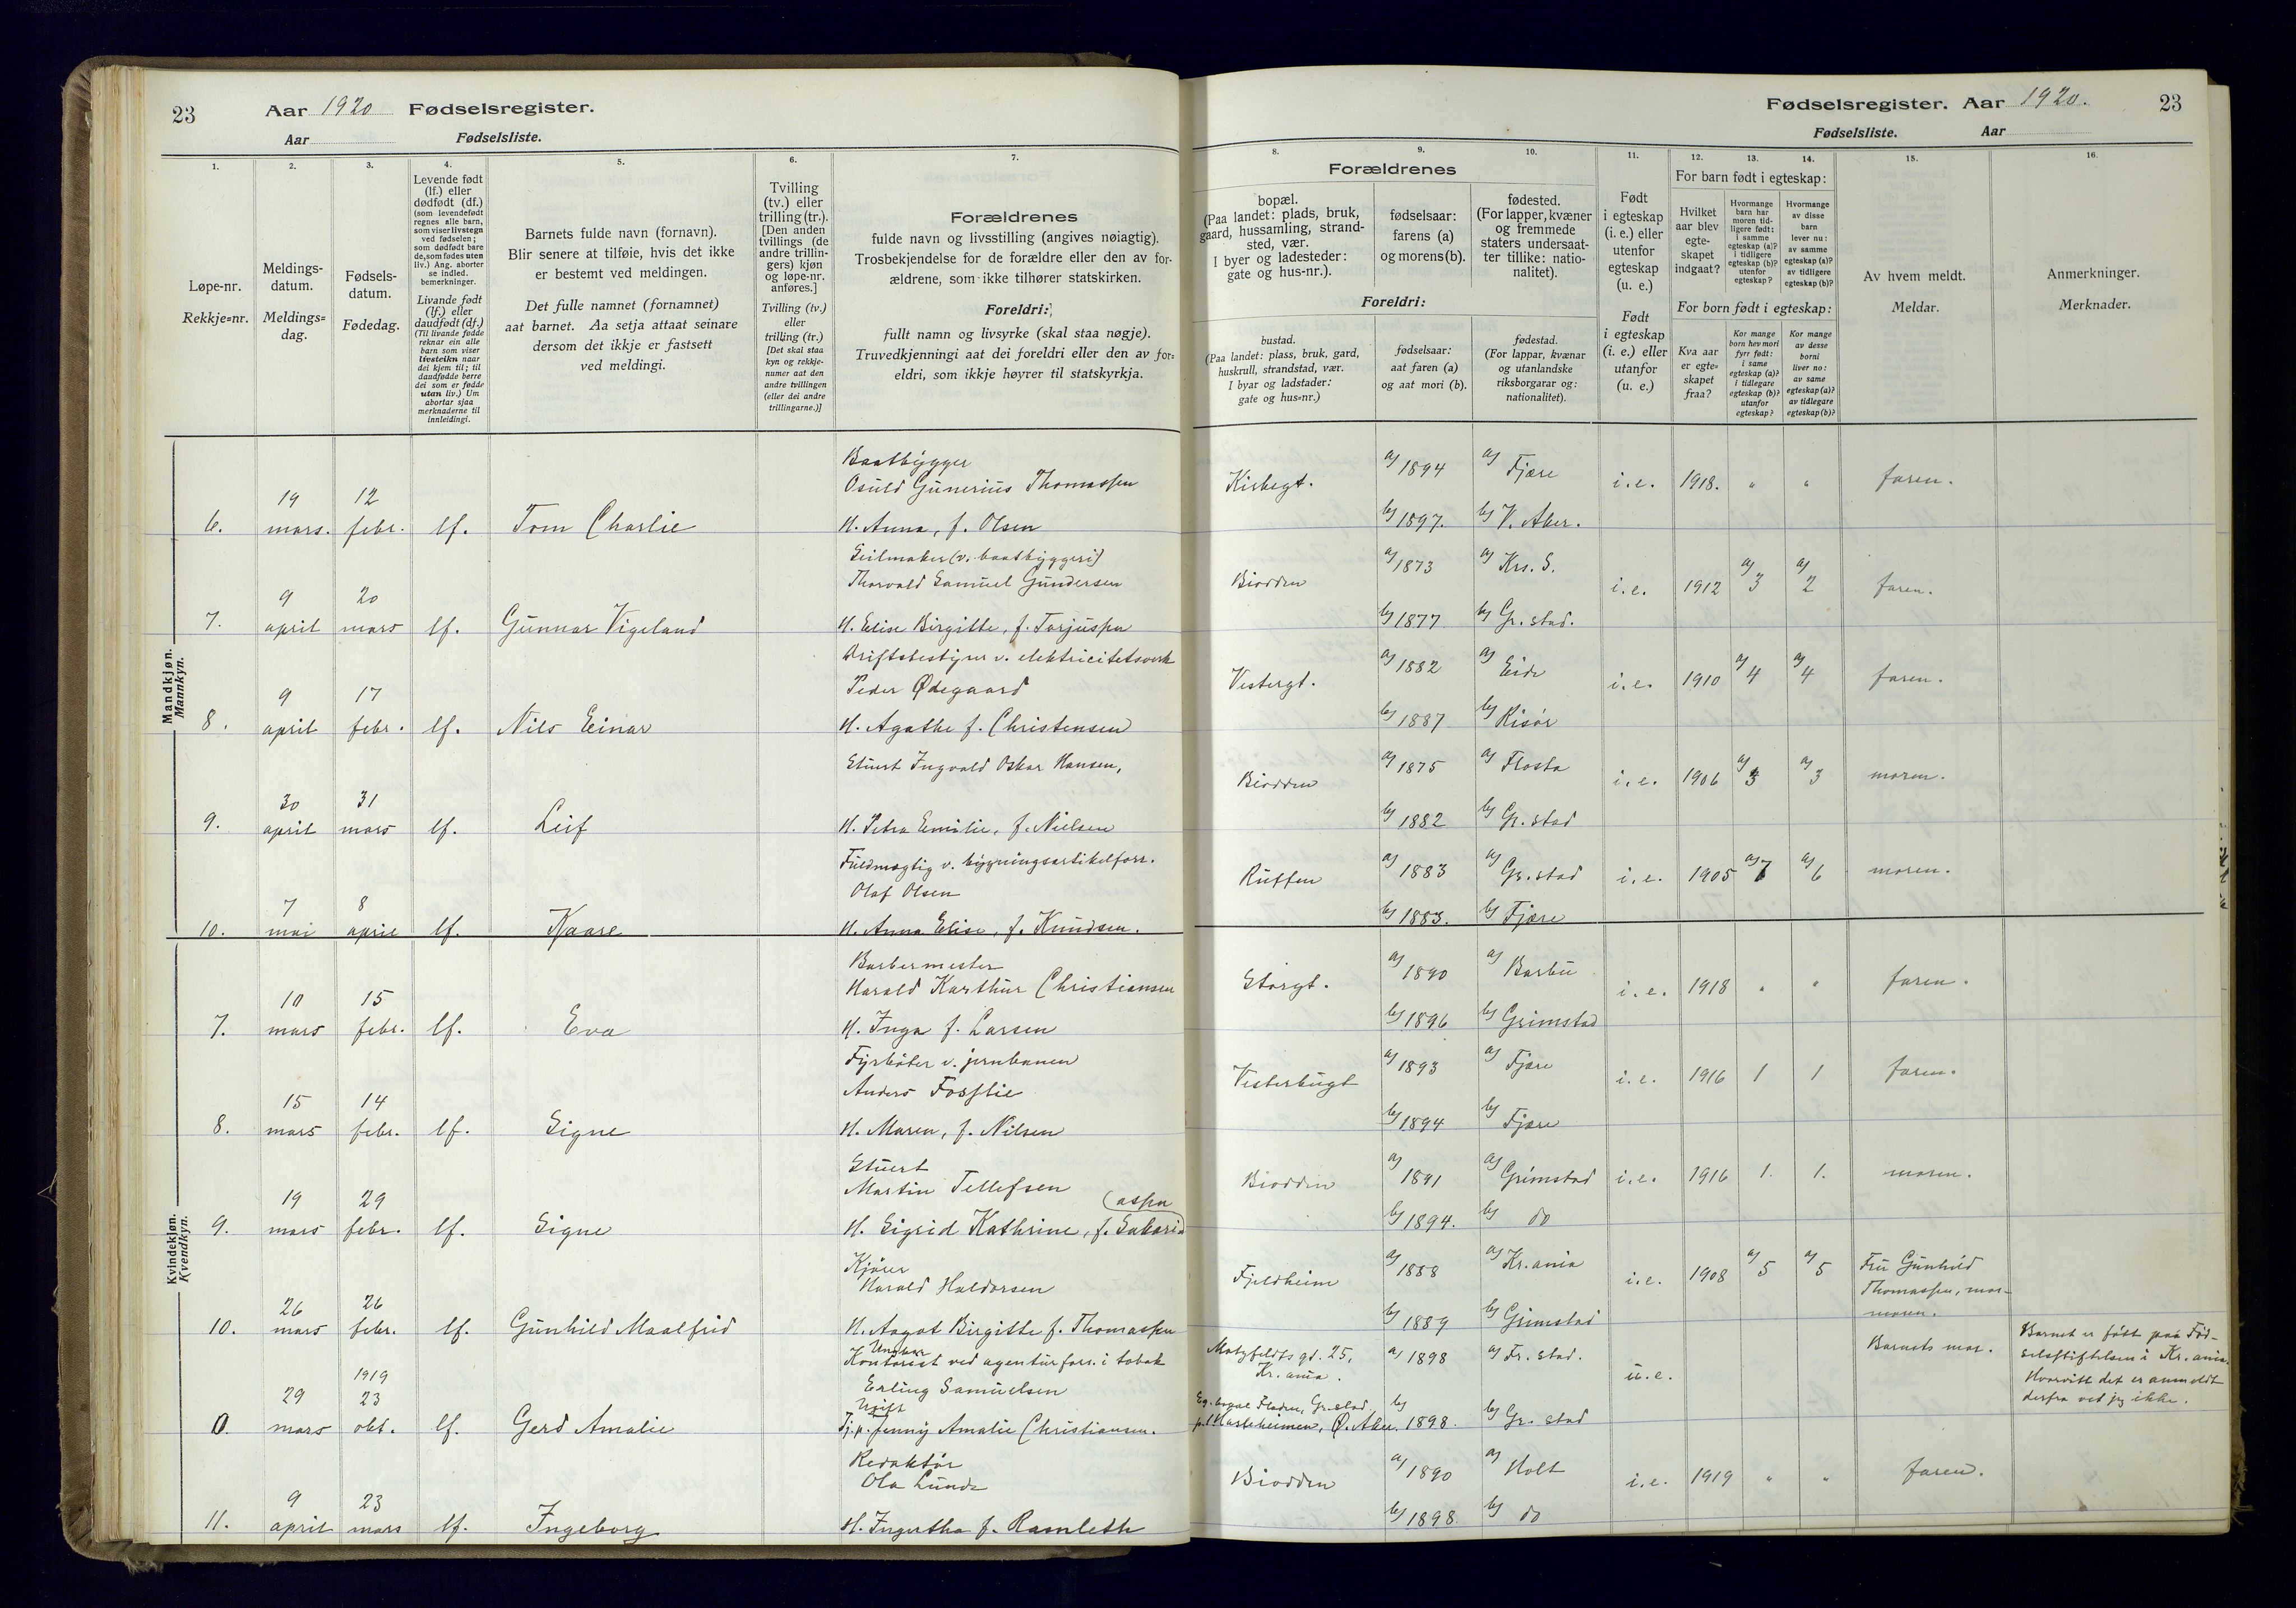 23 Aar 1920 Fødselsregister.
Aar Fødselsliste.
1. 2. 3. 4. 5. 6. 7.
Løpe-nr.
Rekkje=nr.
Meldings-
datum.
Meldings=
dag.
Fødsels-
datum.
Fødedag.
Levende født
(lf.) eller
dødfødt (df.)
(som levendefødt
regnes alle barn,
som viser livstegn
ved fødselen;
som dødfødt bare
de, som fødes uten
liv.) Ang. aborter
se indled.
bemerkninger.
Livande født
(lf.) eller
daudfødt (df.)
(Til livande fødde
reknar ein alle
barn som viser
livsteikn naar
dei kjem til; til
daudfødde berre
dei som er fødde
utan liv.) Um
abortar sjaa
merknaderne til
innleidingi.
Barnets fulde navn (fornavn).
Blir senere at tilføie, hvis det ikke
er bestemt ved meldingen.
Det fulle namnet (fornamnet)
aat barnet. Aa setja attaat seinare
dersom det ikkje er fastsett
ved meldingi.
Tvilling
(tv.) eller
trilling (tr.).
[Den anden
tvillings (de
andre trillin-
gers) kjøn
og løpe-nr.
anføres.]
Tvilling (tv.)
eller
trilling (tr.)
[Det skal staa
kyn og rekkje-
numer aat den
andre tvillingen
(eller dei andre
trillingarne.)]
Forældrenes
fulde navn og livsstilling (angives nøiagtig).
Trosbekjendelse for de forældre eller den av for-
ældrene, som ikke tilhører statskirken.
Foreldri:
fullt namn og livsyrke (skal staa nøgje).
Truvedkjenningi aat dei foreldri eller den av for=
eldri, som ikkje høyrer til statskyrkja.
Fødselsregister. Aar 1920. 23
Fødselsliste. Aar
8. 9. 10. 11. 12. 13. 14. 15. 16.
Forældrenes
bopæl.
(Paa landet: plads, bruk,
gaard, hussamling, strand-
sted, vær.
I byer og ladesteder:
gate og hus-nr.).
fødselsaar:
farens (a)
og morens (b).
fødested.
(For lapper, kvæner
og fremmede
staters undersaat-
ter tillike: natio-
nalitet).
Foreldri:
bustad.
(Paa landet: plass, bruk, gard,
huskrull, strandstad, vær.
I byar og ladstader:
gate og hus=nr.)
fødselsaar:
aat faren (a)
og aat mori (b).
fødestad.
(For lappar, kvænar
og utanlandske
riksborgarar og:
nationalitet).
Født
i egteskap
(i. e.) eller
utenfor
egteskap
(u. e.)
Født
i egteskap
(i. e.) eller
utanfor
(u. e.)
For barn født i egteskap:
Hvilket
aar blev
egte-
skapet
indgaat?
Hvormange
barn har
moren tid-
ligere født:
i samme
egteskap (a)?
i tidligere
egteskap (b)?
utenfor
egteskap?
Hvormange
av disse
barn
lever nu:
av samme
egteskap (a)?
av tidligere
egteskap (b)?
For born født i egteskap:
Kva aar
er egte=
skapet
fraa?
Kor mange
born hev mori
fyrr født:
i same
egteskap (a)?
i tidlegare
egteskap (b)?
utanfor
egteskap?
Kor mange
av desse
borni
liver no:
av same
egteskap (a)?
av tidlegare
egteskap (b)?
Av hvem meldt.
Meldar.
Anmerkninger.
Merknader.
Mandkjøn.
Mannkyn.
Baatbygger
Osuld Gunerius Thomassen
6. 19 mars. 12 febr. lf. Tom Charlie H. Anna, f. Olsen
Kirkegt. a) 1894 a) Fjære i.e. 1918. " " faren.
b) 1897. b) V. Aker.
Seilmaker (v. baatbyggeri)
Thorvald Samuel Gundersen
7. 9 april 20 mars lf. Gunnar Vigeland H. Elise Birgitte, f. Torjussen
Biodden a) 1873 a) Krs. S. i.e. 1912 a) 3 a) 2 faren.
b) 1877 b) Gr. stad.
Driftsbestyrer v. elektricitetsverk
Peder Ødegaard
8. 9 april 17 febr. lf. Nils Einar H. Agathe f. Christensen
Vestergt. a) 1882 a) Eide i.e. 1910 a) 4 a) 4 faren.
b) 1887 b) Risør
Stuert Ingvald Oskar Hansen,
9. 30 april 31 mars lf. Leif H. Petra Emilie, f. Nielsen
Biodden a) 1875 a) Flosta i.e. 1906 a) 3 a) 3 moren.
b) 1882 b) Gr. stad
Fuldmægtig v. bygningsartikelforr.
Olaf Olsen
10. 7 mai 8 april lf. Kaare H. Anna Elise, f. Knudsen.
Ruffen a) 1883 a) Gr. stad i.e. 1905 a) 7 a) 6 moren.
b) 1883. b) Fjære
Kvindekjøn.
Kvendkyn.
Barbermester
Harald Karthur Christiansen
7. 10 mars 15 febr. lf. Eva H. Inga f. Larsen
Storgt. a) 1890 a) Barbu i.e. 1918 " " faren.
b) 1896 b) Grimstad
Fyrbøter v. jernbanen
Anders Fosslie
8. 15 mars 14 febr. lf. Signe H. Maren, f. Nilsen
Vesterbugt a) 1893 a) Fjære i.e. 1916 1 1 faren.
b) 1894 b) Fjære
Stuert
Martin Tellefsen
9. 19 mars 29 febr. lf. Signe H. Sigrid Kathrine, f. Sakari(assen
Biodden a) 1891 a) Grimstad i.e. 1916 1. 1. moren.
b) 1894. b) do
Kjører
Harald Haldorsen
10. 26 mars 26 febr. lf. Gunhild Maalfrid H. Aagot Birgitte f. Thomassen
Fjeldheim a) 1888 a) Kr.ania i.e. 1908 a) 5 a) 5 Fru Gunhild
Thomassen, mor-
moren.
b) 1889 b) Grimstad
Ungkar
Kontorist ved agenturforr. i tobak
Erling Samuelsen
Ugift
0. 29 mars 1919 23 okt. lf. Gerd Amalie Tj.p. Jenny Amalie Christiansen.
Motzfeldts gt. 25,
Kr.ania. a) 1898 a) Fr. stad. u.e. Barnets mor.
Fladen, Gr.stad,
Ø. Aker. b) 1898. b) Gr. stad
Barnet er født paa Fød-
selsstiftelsen i Kr.ania.
Hvorvitt det er anmeldt
derfra ved jeg ikke.
Redaktør
Ola Lunde
11. 9 april 23 mars lf. Ingeborg H. Ingertha f. Ramleth
Biodden a) 1890 a) Holt i.e. 1919 " " faren.
b) 1898. b) do